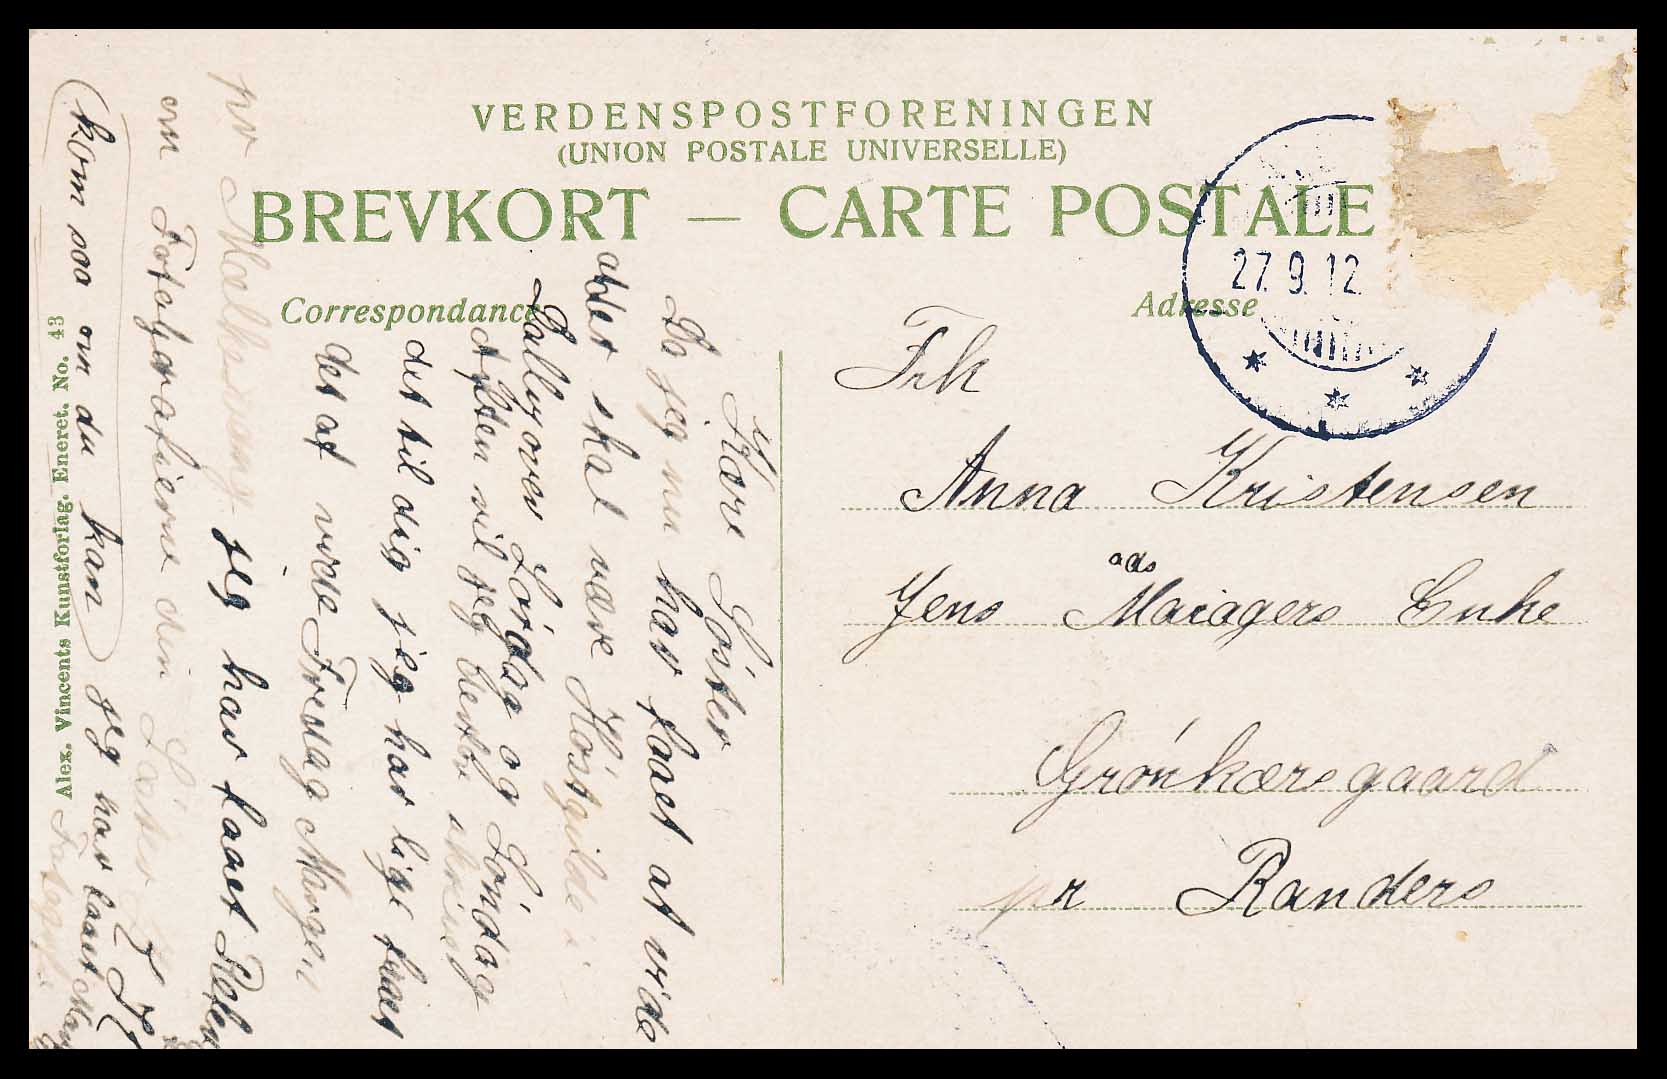 VERDENSPOSTFORENINGEN
(UNION POSTALE UNIVERSELLE)
BREVKORT — CARTE POSTALE
Correspondance
Adresse
27.9.12
Frk
Anna Kristensen
ads
Jens Mariagers Enke
Grónkærsgaard
pr Randers
Kære Sóster
Da jeg nu har faaet at vide
atder skal være Hóstgilde i
Dallgover Lórdag og Sóndag
Aften vil jeg derfor skrive
det til dig jeg har lige faaet
det at vide Fredag Morgen
jeg har faaet
pr
om Fotografierne din Sóster
kom saa om du kan jeg har faaet
Alex. Vincents Kunstforlag. Eneret. No. 43